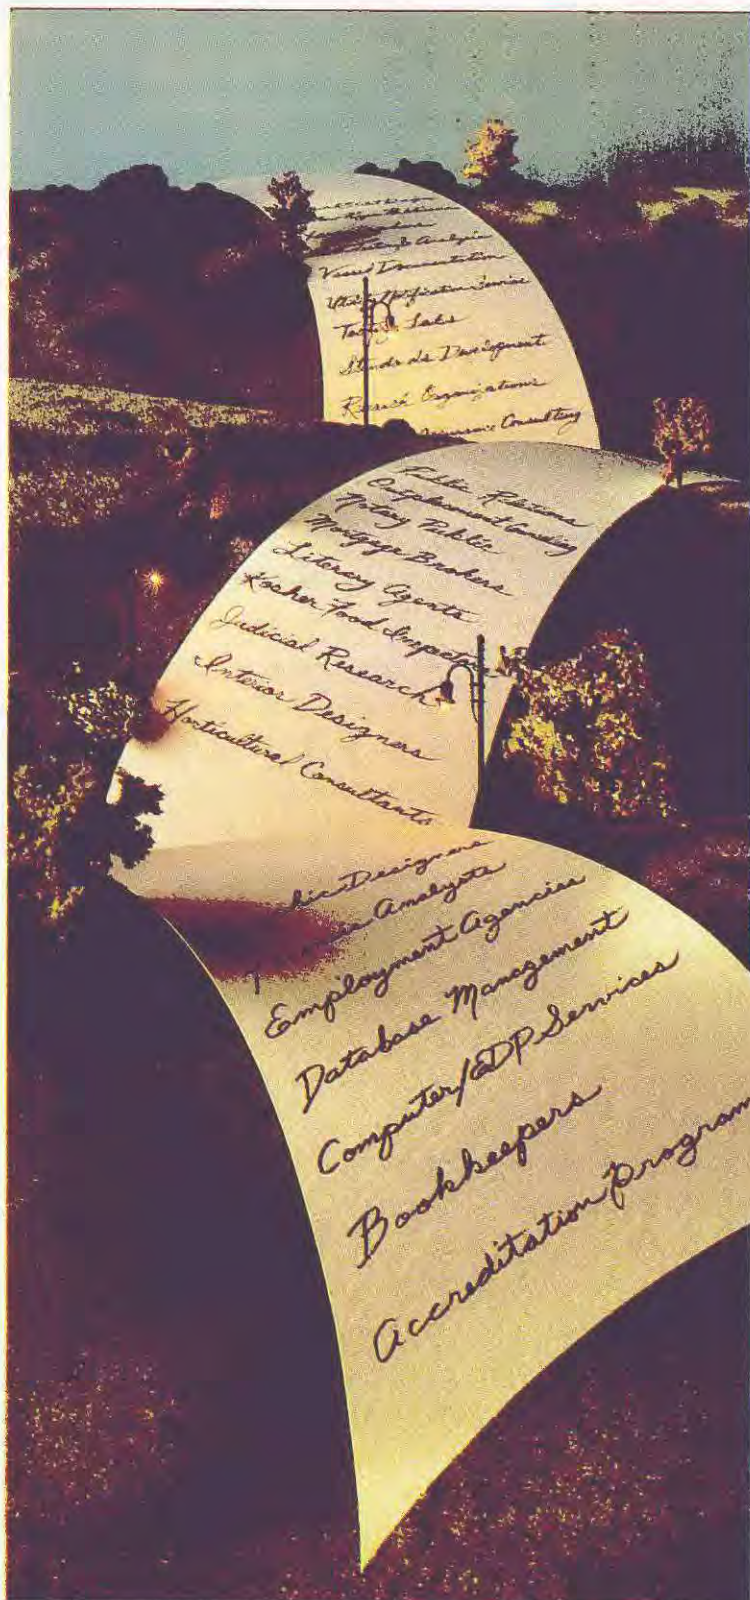 Analysis
Visual Documentation
Utility Notification Service
Labs
Standards Development
Research Organizations
Insurance Consulting
Public Relations
Outplacement Consulting
Notary Public
Mortgage Brokers
Literary Agents
Kosher Food Inspectors
Judicial Research
Interior Designers
Horticultural Consultants
hic Designers
Analysts
Employment Agencies
Database Management
Computer/EDP Services
Bookkeepers
Accreditation Program